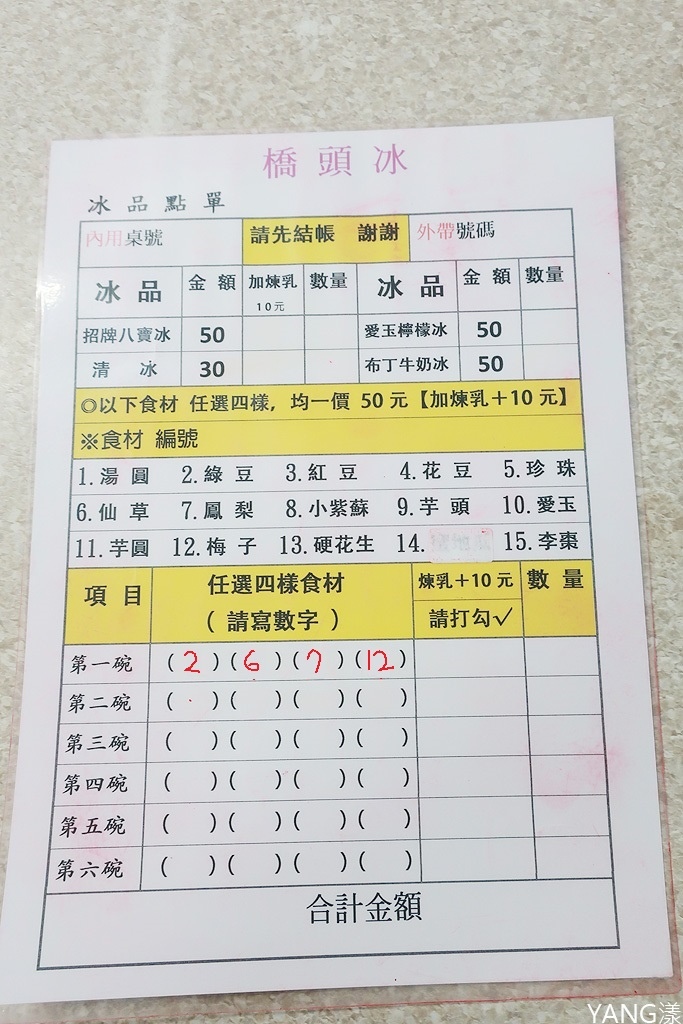 橋頭冰
冰品點單
內用桌號 請先結帳 謝謝 外帶號碼
冰品 金額 加煉乳 10元 數量 冰品 金額 數量
招牌八寶冰 50 愛玉檸檬冰 50
清冰 30 布丁牛奶冰 50
◎以下食材 任選四樣，均一價 50 元【加煉乳＋10 元】
※食材 編號
1.湯圓 2.綠豆 3.紅豆 4.花豆 5.珍珠
6.仙草 7.鳳梨 8.小紫蘇 9.芋頭 10.愛玉
11.芋圓 12.梅子 13.硬花生 14. 15.李棗
項目 任選四樣食材 煉乳＋10 元 數量
（請寫數字） 請打勾✓
第一碗 (2)(6)(7)(12)
第二碗 ( )( )( )( )
第三碗 ( )( )( )( )
第四碗 ( )( )( )( )
第五碗 ( )( )( )( )
第六碗 ( )( )( )( )
合計金額
YANG漾